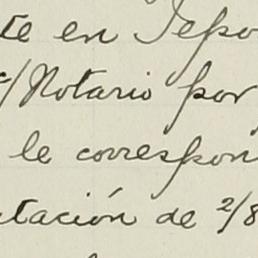 te en Tepo
/Notario por
le correspon
tación de 2/8